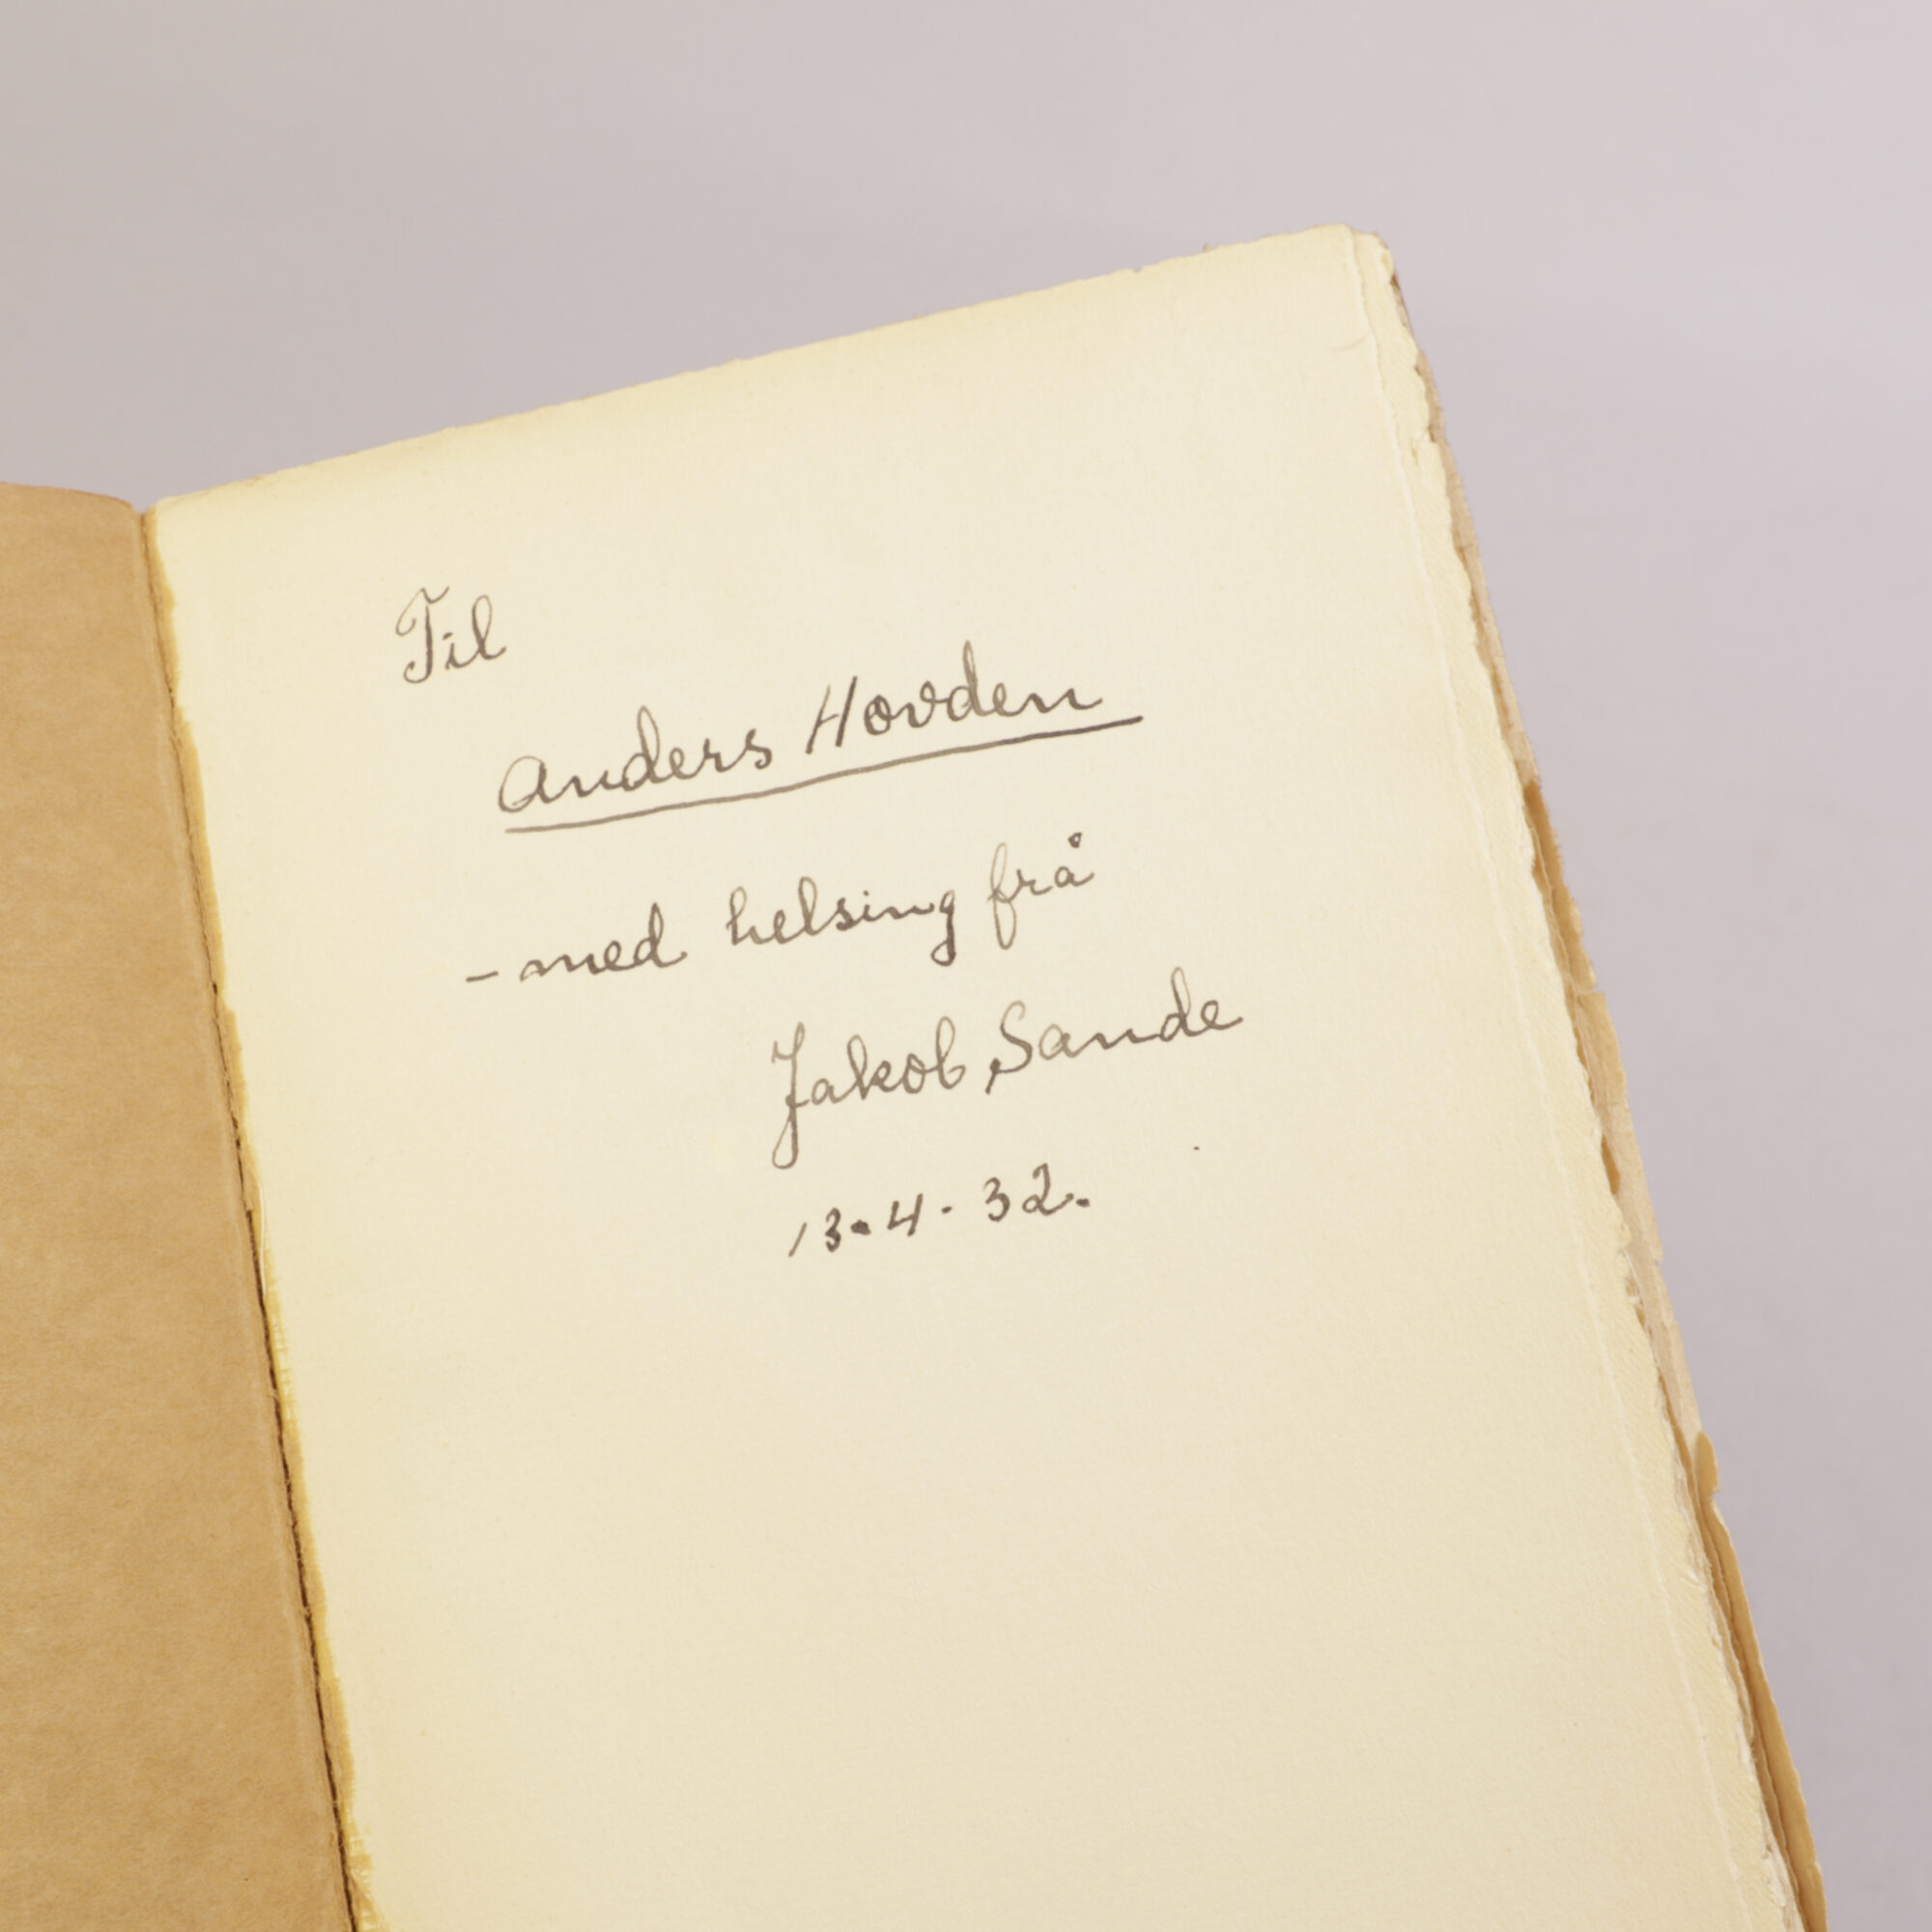 Til
Anders Hovden
- med helsing frå
Jakob Sande
13.4.32.